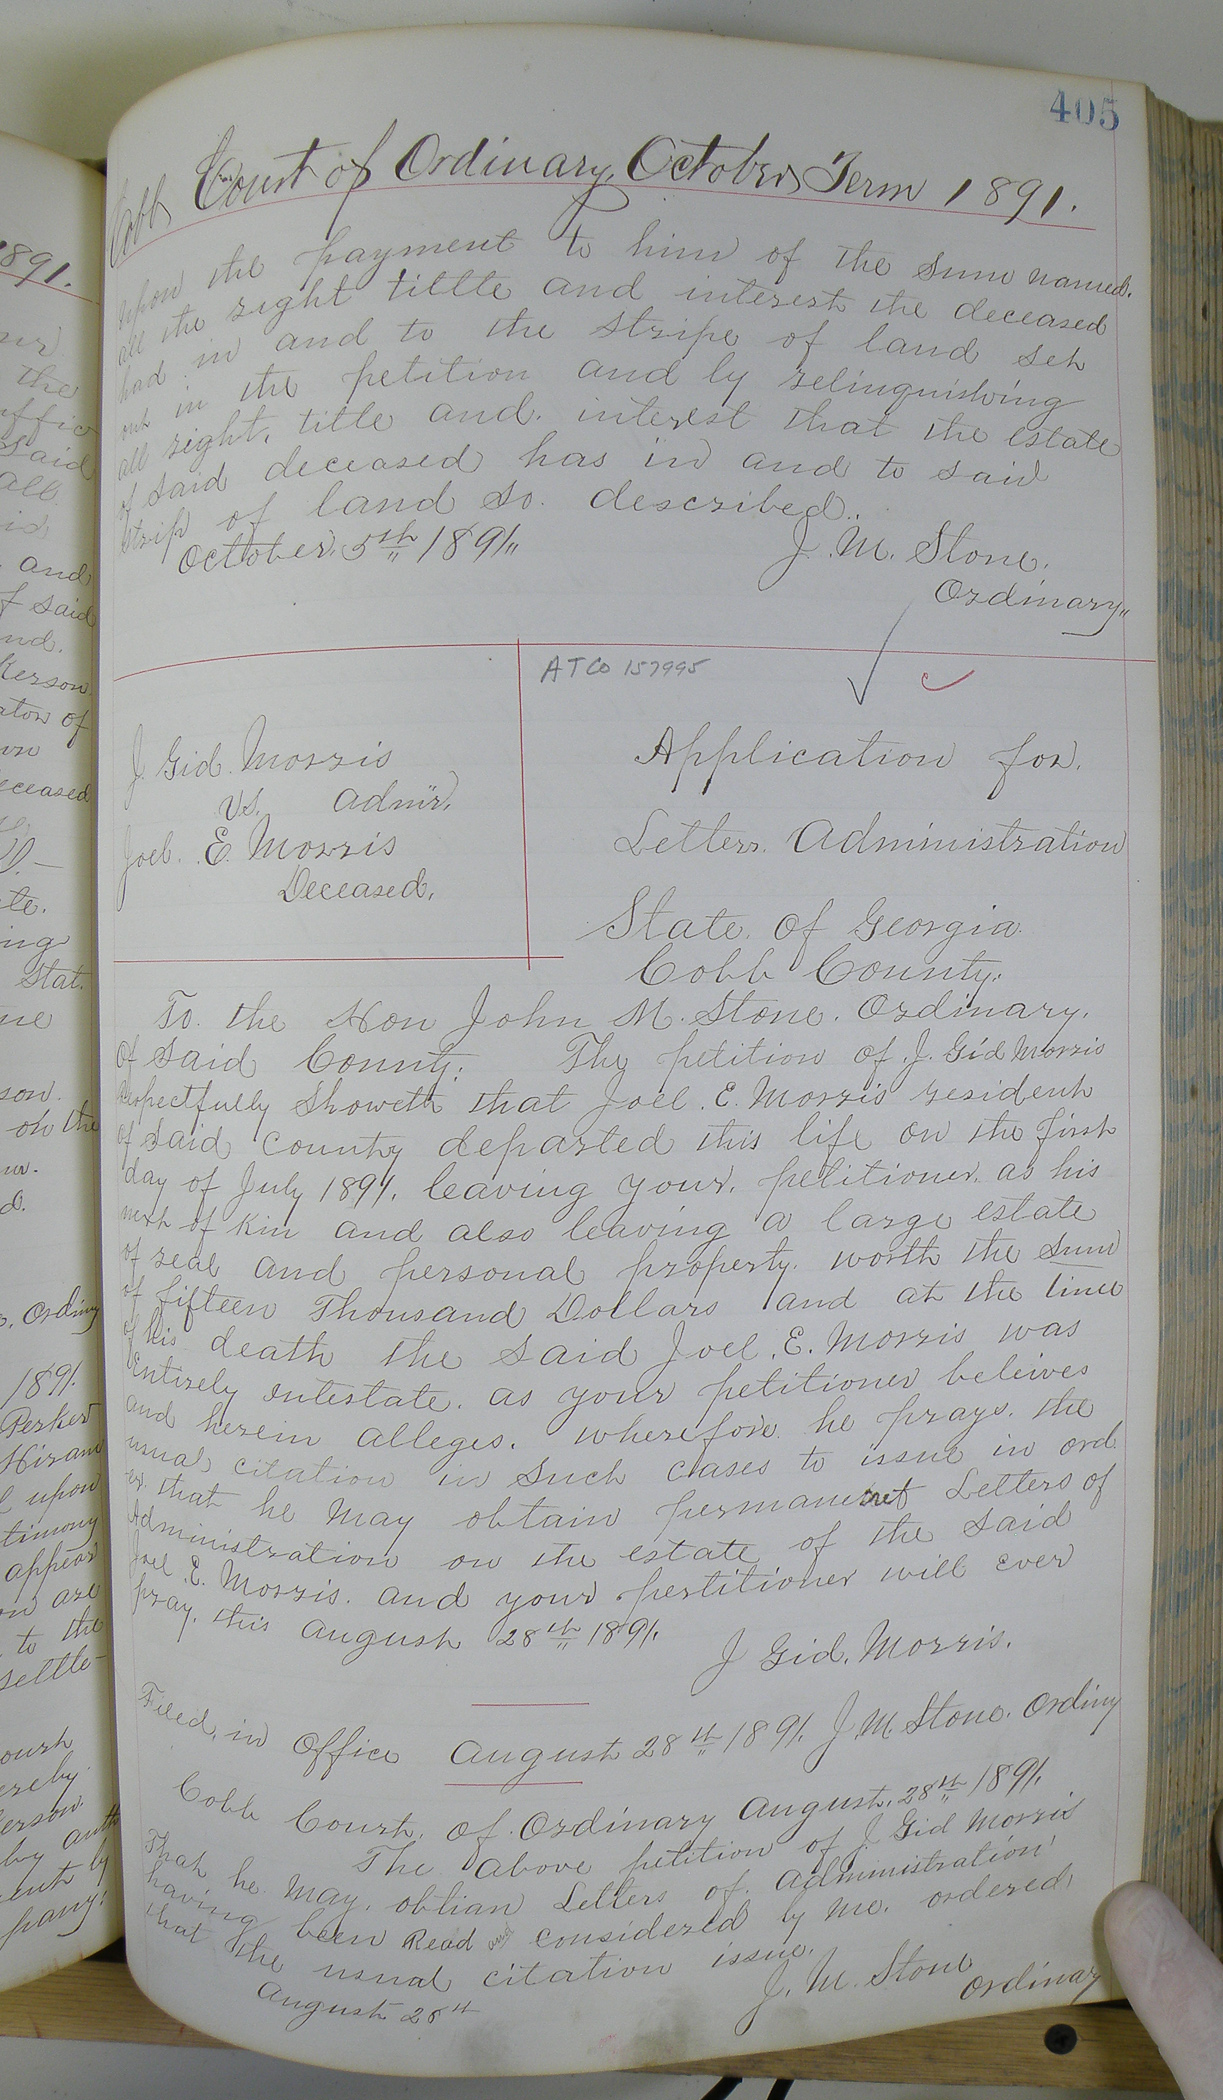 405
Cobb Court of Ordinary, October Term 1891.
upon the payment to him of the sum named.
all the right tittle and interest the deceased
had in and to the stripe of land set
out in the petition and by relinquishing
all right, title and. interest that the estate
of said deceased has in and to said
strip of land so. described.
October. 5th 1891.
J. M. Stone.
Ordinary.
ATCo 157995
J. Gid. Morris
vs. Admr.
Joel. E. Morris
Deceased.
Application for.
Letters. Administration
State. of Georgia.
Cobb County.
To. the Hon John M. Stone. Ordinary.
of said County. The petition of J. Gid Morris
respectfully Showeth that Joel. E. Morris resident
of said county departed this life on the first
day of July 1891. leaving your. petitioner. as his
next of kin and also leaving a large estate
of real and personal property. worth the sum
of fifteen Thousand Dollars and at the time
of his death the said Joel. E. Morris was
Entirely intestate. as your petitioner beleives
and herein alleges. wherefore he prays. the
usual citation in such cases to issue in ord
er. that he may obtain permanent Letters of
Administration on the estate of the said
Joel E. Morris. and your petitioner will ever
pray. this August 28th 1891.
J Gid. Morris.
Filed. in Office August 28th 1891. J. M. Stone. Ordiny
Cobb Court. of Ordinary August. 28th 1891.
The above petition of J. Gid Morris
That he may. obtian Letters of. Administration
having been Read and considered by me. ordered
that the usual citation issue.
August 28th
J. M. Stone
Ordinary
1891.
the
said
all
and
of said
Kerson
of
deceased
ing
Stat.
on the
Ordiny
1891.
Perker
Hiram
upon
timony
appear
are
to the
settle-
by auth